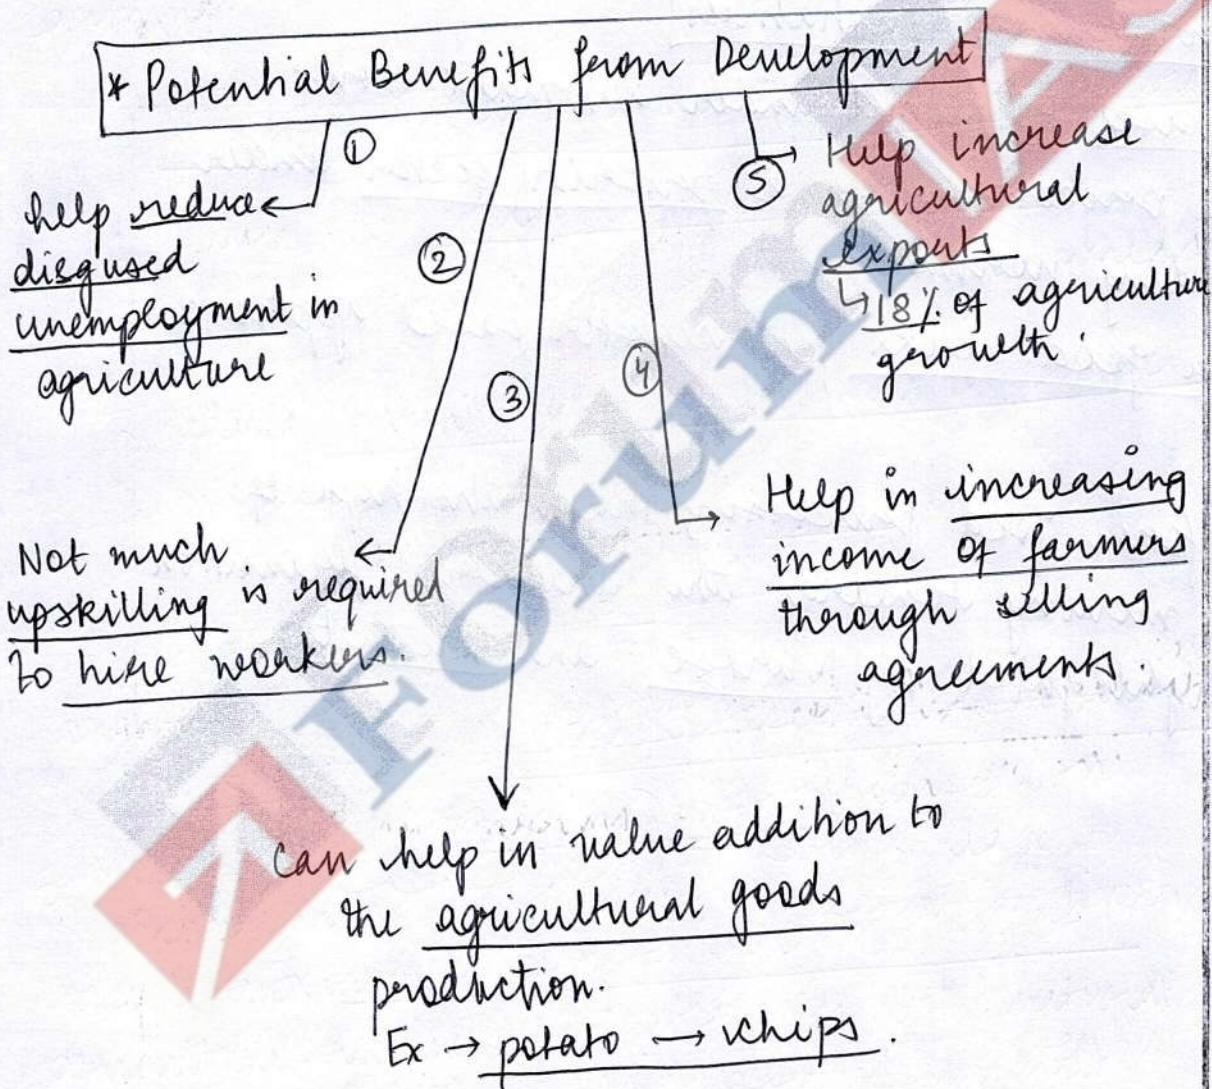 * Potential Benefits from Development
①
help reduce
disgused
unemployment in
agriculture
②
Not much
upskilling is required
to hire workers.
③
can help in value addition to
the agricultural goods
production.
Ex → potato → chips.
④
Help in increasing
income of farmers
through selling
agreements.
⑤
Help increase
agricultural
exports
↳ 18% of agriculture
growth.
ForumIAS